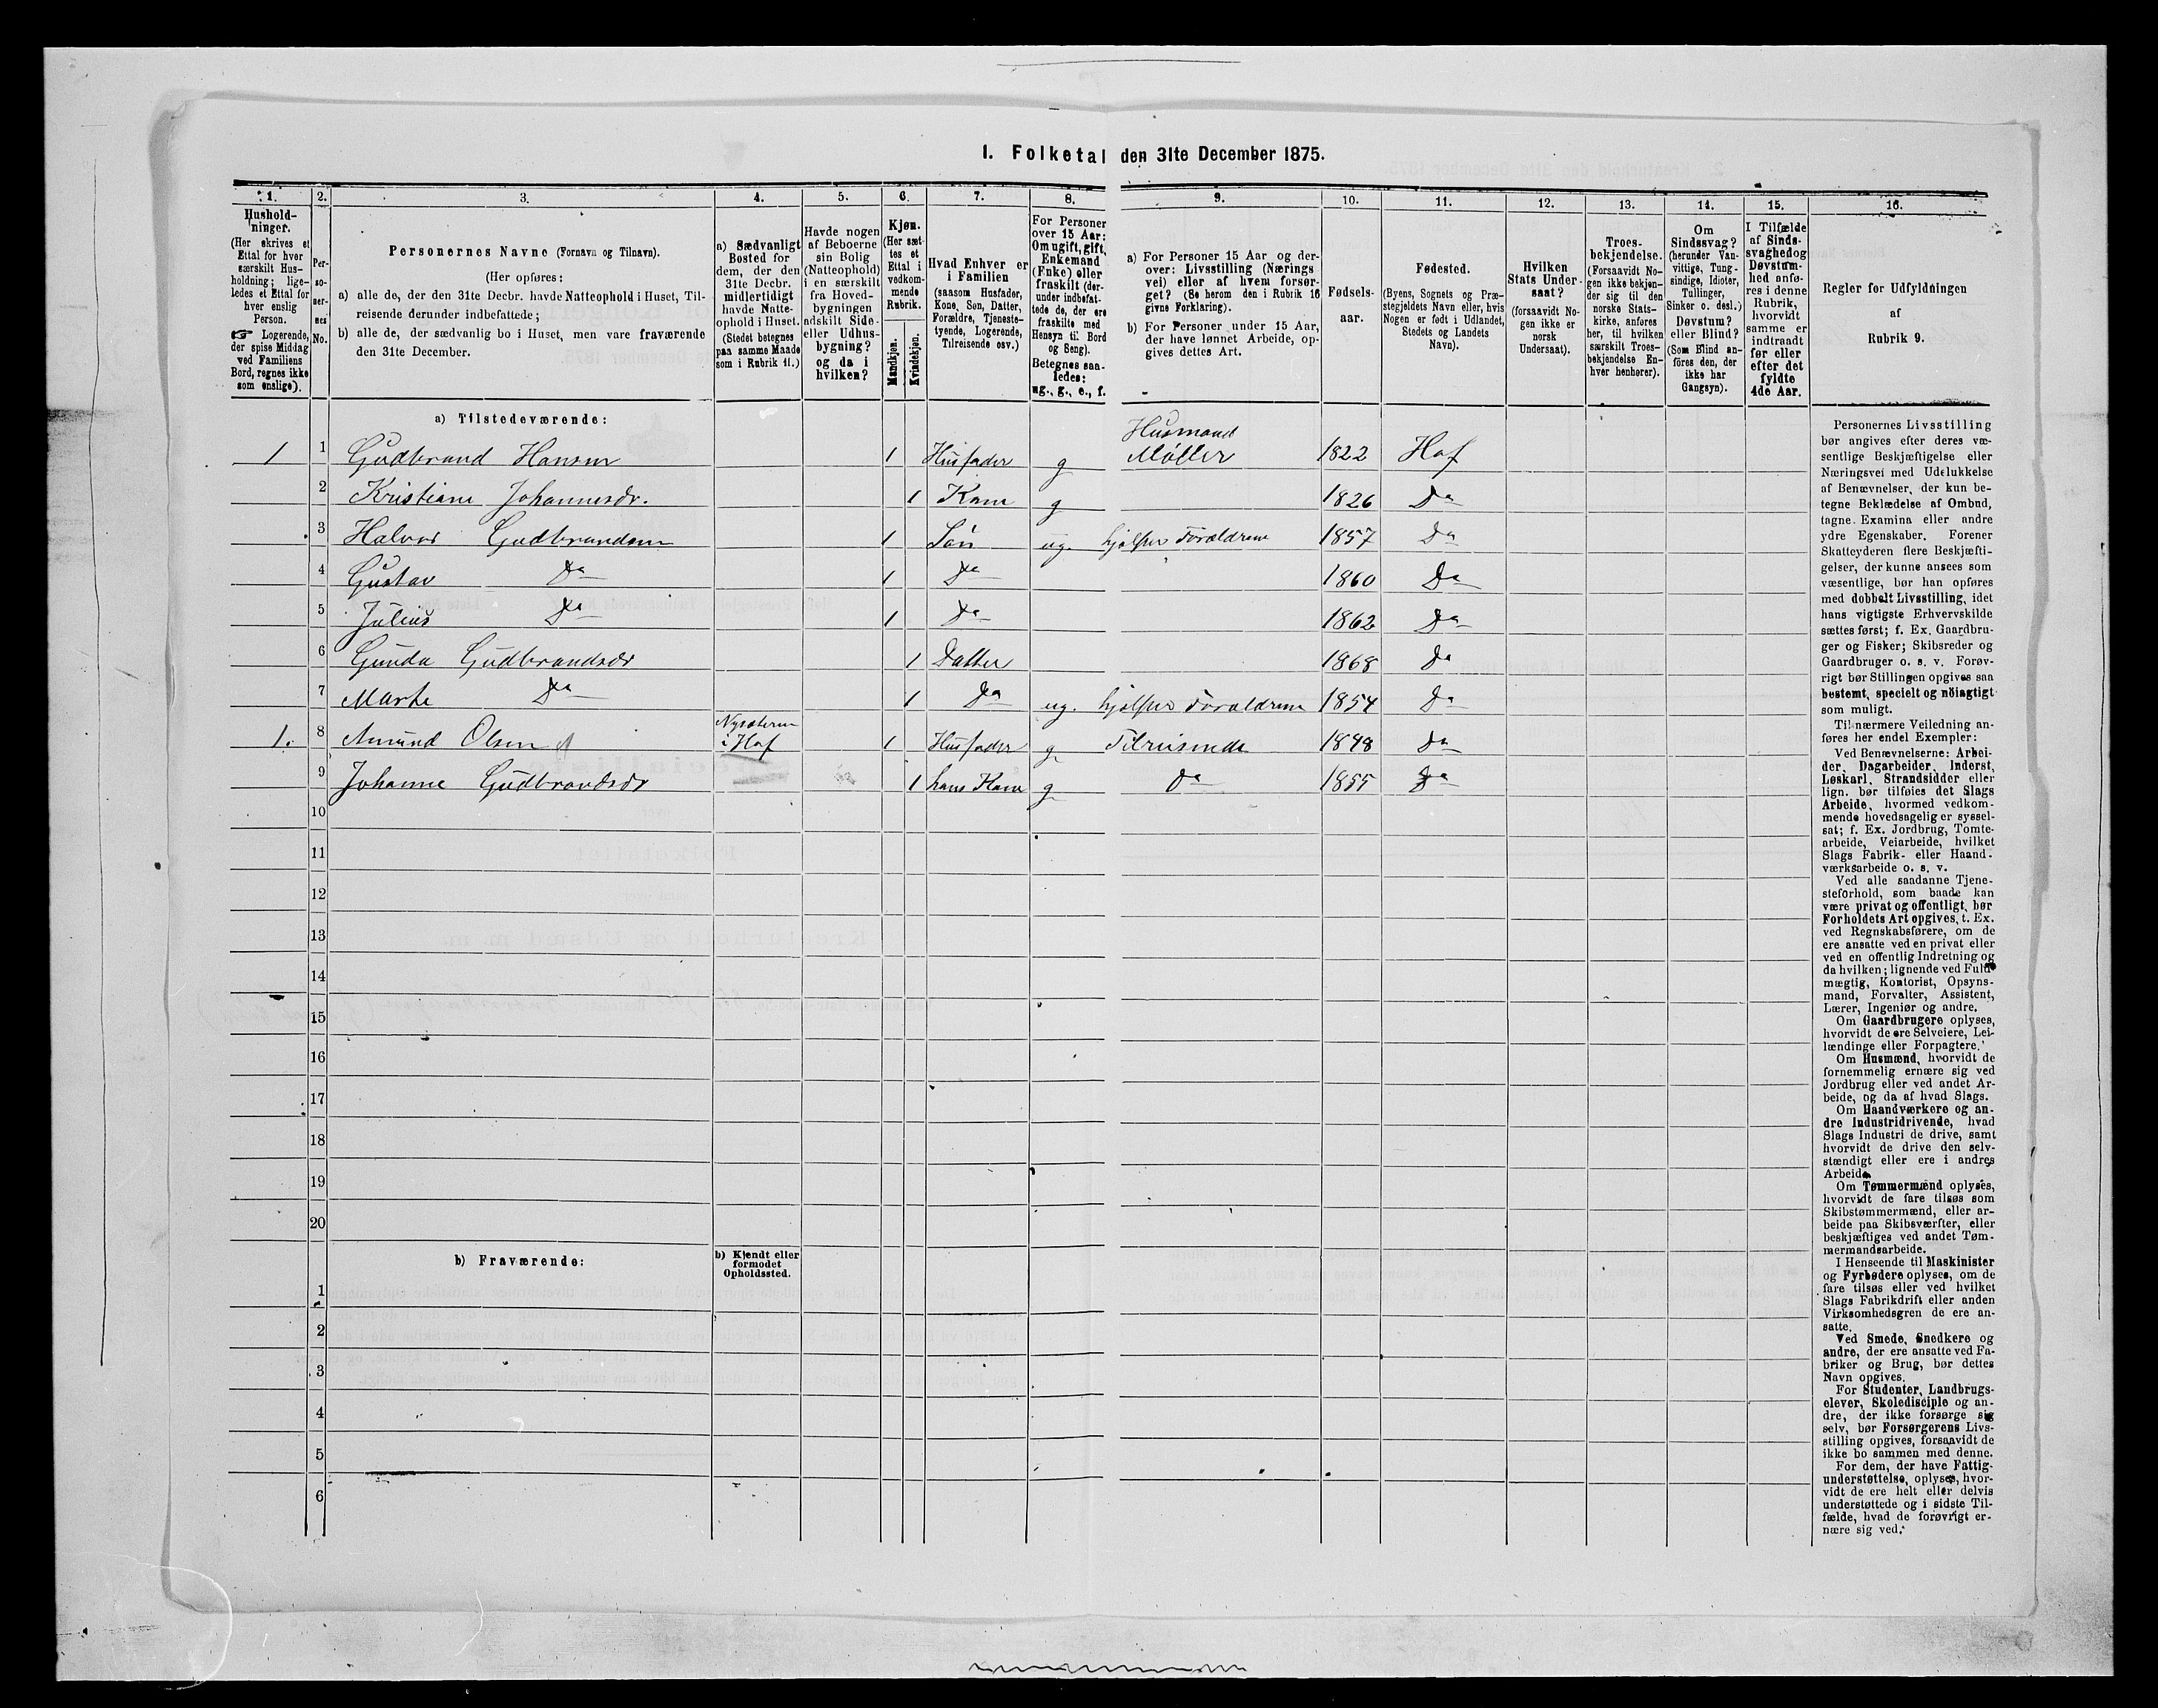 1. Folketal den 31te December 1875.
1.
2.
3.
4.
5.
6.
7.
8.
9.
10.
11.
12.
13.
14.
15.
16.
Hushold-
ninger.
(Her skrives et
Ettal for hver
særskilt Hus-
holdning; lige-
ledes et Ettal for
hver enslig
Person.
☞ Logerende,
der spise Middag
ved Familiens
Bord, regnes ikke
som enslige).
Per-
so-
ner-
nes
No.
Personernes Navne (Fornavn og Tilnavn).
(Her opføres:
a) alle de, der den 31te Decbr. havde Natteophold i Huset, Til-
reisende derunder indbefattede;
b) alle de, der sædvanlig bo i Huset, men vare fraværende
den 31te December.
a) Sædvanligt
Bosted for
dem, der den
31te Decbr.
midlertidigt
havde Natte-
ophold i Huset.
(Stedet betegnes
paa samme Maade
som i Rubrik 11.)
Havde nogen
af Beboerne
sin Bolig
(Natteophold)
i en særskilt
fra Hoved-
bygningen
adskilt Side-
eller Udhus-
bygning?
og da i
hvilken?
Kjøn.
(Her sæt-
tes et
Ettal i
vedkom-
mende
Rubrik.
Mandkjøn.
Kvindekjøn.
Hvad Enhver er
i Familien
(saasom Husfader,
Kone, Søn, Datter,
Forældre, Tjeneste-
tyende, Logerende,
Tilreisende osv.)
For Personer
over 15 Aar:
Om ugift, gift,
Enkemand
(Enke) eller
fraskilt (der-
under indbefat-
tede de, der ere
fraskilte med
Hensyn til Bord
og Seng).
Betegnes saa-
ledes:
ug., g., e., f.
a) For Personer 15 Aar og der-
over: Livsstilling (Nærings-
vei) eller af hvem forsør-
get? (Se herom den i Rubrik 16
givne Forklaring).
b) For Personer under 15 Aar,
der have lønnet Arbeide, op-
gives dettes Art.
Fødsels-
aar.
Fødested.
(Byens, Sognets og Præ-
stegjeldets Navn eller, hvis
Nogen er født i Udlandet,
Stedets og Landets
Navn).
Hvilken
Stats Under-
saat?
(forsaavidt No-
gen ikke er
norsk
Undersaat).
Troes-
bekjendelse.
(Forsaavidt No-
gen ikke bekjen-
der sig til den
norske Stats-
kirke, anføres
her, til hvilken
særskilt Troes-
bekjendelse En-
hver henhører).
Om
Sindssvag?
(herunder Van-
vittige, Tung-
sindige, Idioter,
Tullinger,
Sinker o. desl.)
Døvstum?
eller Blind?
(Som Blind an-
føres den, der
ikke har
Gangsyn).
I Tilfælde
af Sinds-
svaghed og
Døvstum-
hed anfø-
res i denne
Rubrik,
hvorvidt
samme er
indtraadt
før eller
efter det
fyldte
4de Aar.
Regler for Udfyldningen
af
Rubrik 9.
a) Tilstedeværende:
1 1 Gudbrand Hansen 1 Husfader g Husmand Møller 1822 Hof
2 Kristiane Johannesdr. 1 Kone g 1826 Do
3 Halvor Gudbrandsen 1 Søn ug. hjælper Forældrene 1857 Do
4 Gustav Do 1 Do 1860 Do
5 Julius Do 1 Do 1862 Do
6 Gunda Gudbrandsdr 1 Datter 1868 Do
7 Marte Do 1 Do ug. hjælper Forældrene 1854 Do
1. 8 Amund Olsen Nysæteren i Hof 1 Husfader g Tilreisende 1848 Do
9 Johanne Gudbrandsdr 1 hans Kone g Do 1855 Do
10
11
12
13
14
15
16
17
18
19
20
b) Fraværende:
b) Kjendt eller
formodet
Opholdssted.
1
2
3
4
5
6
Personernes Livsstilling
bør angives efter deres væ-
sentlige Beskjæftigelse eller
Næringsvei med Udelukkelse
af Benævnelser, der kun be-
tegne Beklædelse af Ombud,
tagne Examina eller andre
ydre Egenskaber. Forener
Skatteyderen flere Beskjæfti-
gelser, der kunne ansees som
væsentlige, bør han opføres
med dobbelt Livsstilling, idet
hans vigtigste Erhvervskilde
sættes først; f. Ex. Gaardbru-
ger og Fisker; Skibsreder og
Gaardbruger o. s. v. Forøv-
rigt bør Stillingen opgives saa
bestemt, specielt og nöiagtigt
som muligt.
Til nærmere Veiledning an-
føres her endel Exempler:
Ved Benævnelserne: Arbei-
der, Dagarbeider, Inderst,
Løskarl, Strandsidder eller
lign. bør tilføies det Slags
Arbeide, hvormed vedkom-
mende hovedsagelig er syssel-
sat; f. Ex. Jordbrug, Tomte-
arbeide, Veiarbeide, hvilket
Slags Fabrik- eller Haand-
værksarbeide o. s. v.
Ved alle saadanne Tjene-
steforhold, som baade kan
være privat og offentligt, bør
Forholdets Art opgives, t. Ex.
ved Regnskabsførere, om de
ere ansatte ved en privat eller
ved en offentlig Indretning og
da hvilken; lignende ved Fuld-
mægtig, Kontorist, Opsyns-
mand, Forvalter, Assistent,
Lærer, Ingeniør og andre.
Om Gaardbrugere oplyses,
hvorvidt de ere Selveiere, Lei-
lændinge eller Forpagtere.
Om Husmænd, hvorvidt de
fornemmelig ernære sig ved
Jordbrug eller ved andet Ar-
beide, og da af hvad Slags.
Om Haandværkere og an-
dre Industridrivende, hvad
Slags Industri de drive, samt
hvorvidt de drive den selv-
stændigt eller ere i andres
Arbeide.
Om Tømmermænd oplyses,
hvorvidt de fare tilsøs som
Skibstømmermænd, eller ar-
beide paa Skibsværfter, eller
beskjæftiges ved andet Tøm-
mermandsarbeide.
I Henseende til Maskinister
og Fyrbødere oplyses, om de
fare tilsøs eller ved hvilket
Slags Fabrikdrift eller anden
Virksomhedsgren de ere an-
satte.
Ved Smede, Snedkere og
andre, der ere ansatte ved Fa-
briker og Brug, bør dettes
Navn opgives.
For Studenter, Landbrugs-
elever, Skoledisciple og an-
dre, der ikke forsørge sig
selv, bør Forsørgerens Livs-
stilling opgives, forsaavidt de
ikke bo sammen med denne.
For dem, der have Fattig-
understøttelse, oplyses, hvor-
vidt de ere helt eller delvis
understøttede og i sidste Til-
fælde, hvad de forøvrigt er-
nære sig ved.